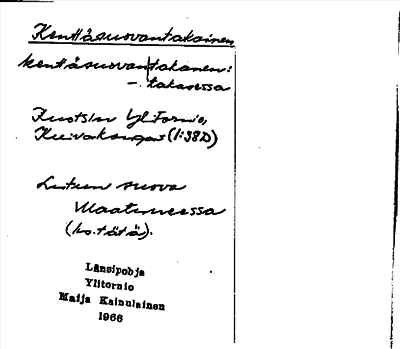 Kenttäsuovantakainen
kenttäsuovan|takanen:
-. takasessa
Ruotsin Ylitornio,
Kuivakangas (1:38D)
suova
Maatimessa
(ks. tätä).
Länsipohja
Ylitornio
Maija Kainulainen
1966